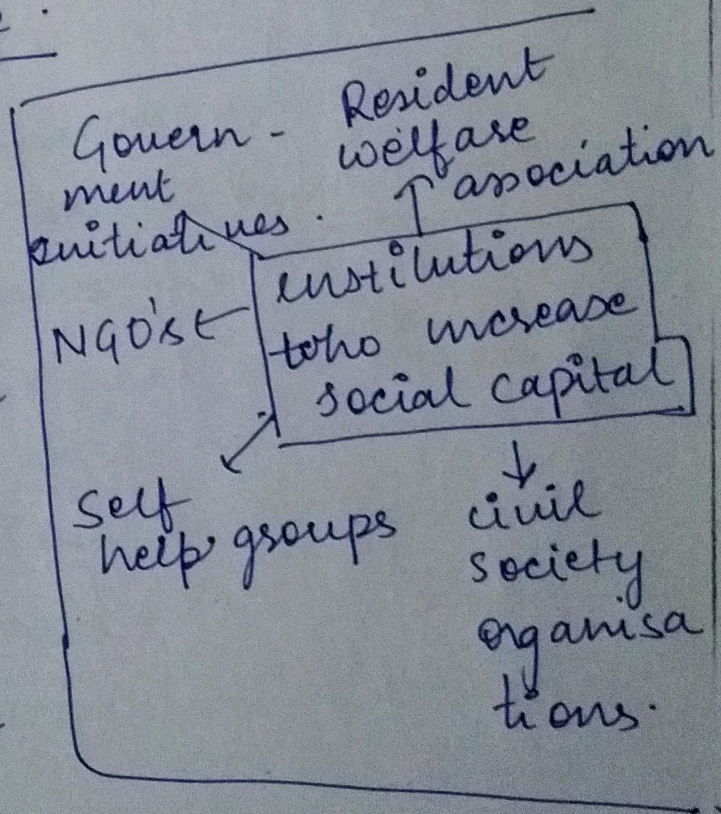 Govern -
ment
initiatives.
Resident
welfare
association
institutions
who increase
social capital
NGO's
Self
help groups
civil
society
organisa
tions.